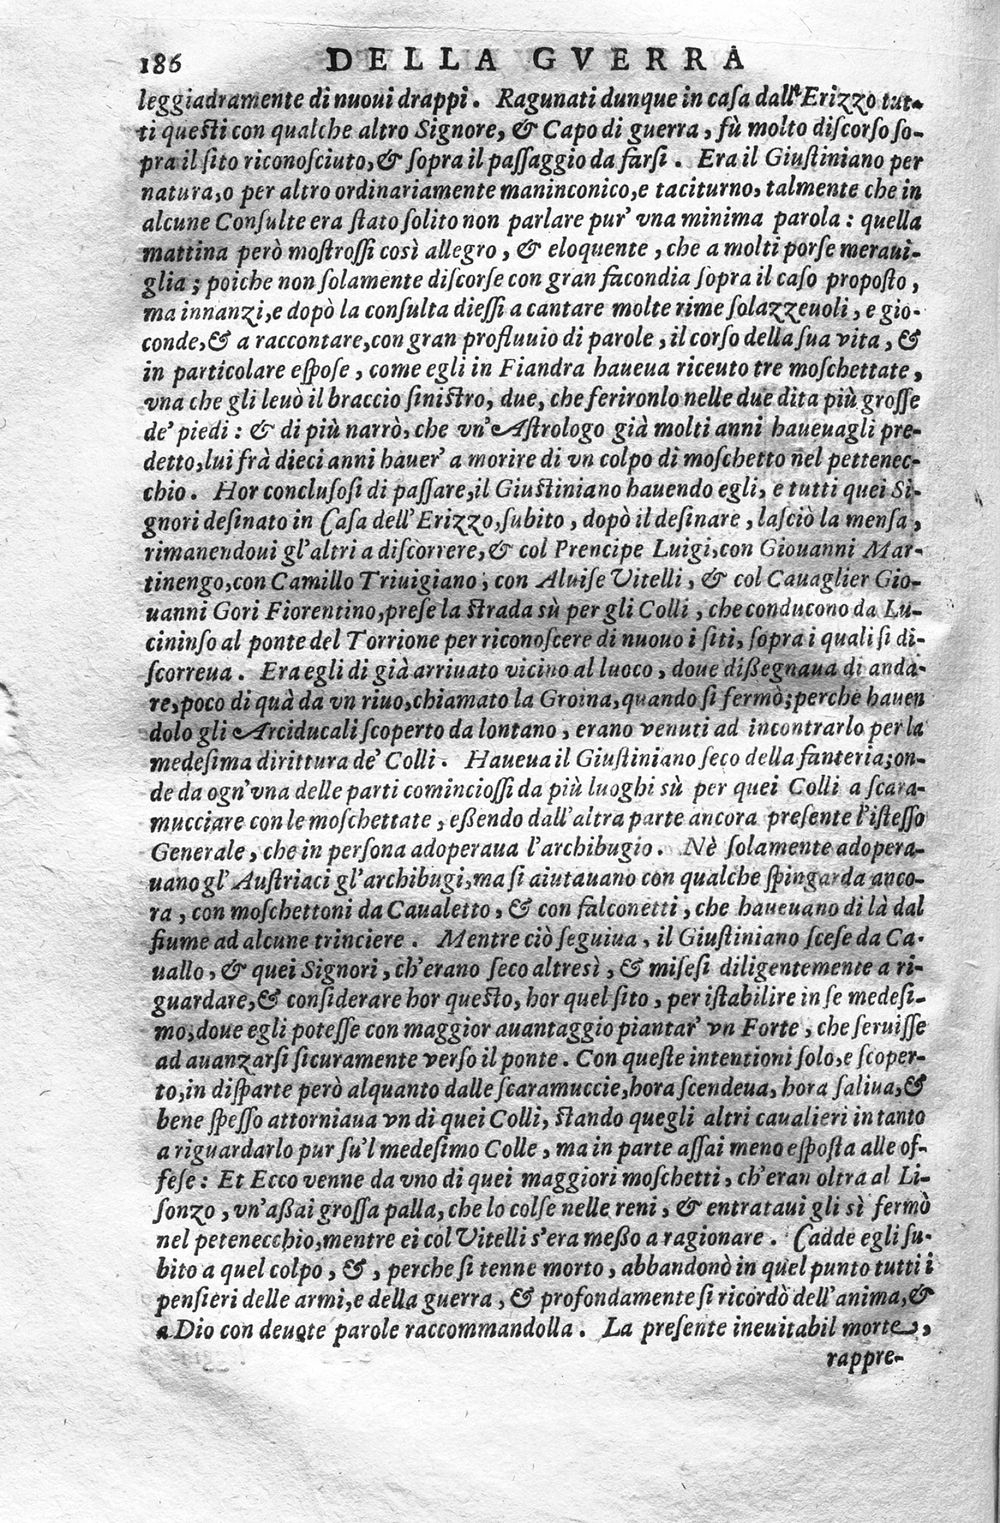 186 DELLA GVERRA
leggiadramente di nuoui drappi. Ragunati dunque in casa dall'Erizzo tut-
ti questi con qualche altro Signore, & Capo di guerra, fù molto discorso so-
pra il sito riconosciuto, & sopra il passaggio da farsi. Era il Giustiniano per
natura, o per altro ordinariamente maninconico, e taciturno, talmente che in
alcune Consulte era stato solito non parlare pur' vna minima parola: quella
mattina però mostrossi così allegro, & eloquente, che a molti porse meraui-
glia; poiche non solamente discorse con gran facondia sopra il caso proposto,
ma innanzi, e dopò la consulta diessi a cantare molte rime solazzeuoli, e gio-
conde, & a raccontare, con gran profluuio di parole, il corso della sua vita, &
in particolare espose, come egli in Fiandra haueua riceuto tre moschettate,
vna che gli leuò il braccio sinistro, due, che ferironlo nelle due dita più grosse
de' piedi: & di più narrò, che vn' Astrologo già molti anni haueuagli pre-
detto, lui frà dieci anni hauer' a morire di vn colpo di moschetto nel pettenec-
chio. Hor conclusosi di passare, il Giustiniano hauendo egli, e tutti quei Si-
gnori desinato in Casa dell'Erizzo, subito, dopò il desinare, lasciò la mensa,
rimanendoui gl'altri a discorrere, & col Prencipe Luigi, con Giouanni Mar-
tinengo, con Camillo Triuigiano, con Aluise Vitelli, & col Cauaglier Gio-
uanni Gori Fiorentino, prese la strada sù per gli Colli, che conducono da Lu-
cininso al ponte del Torrione per riconoscere di nuouo i siti, sopra i quali si di-
scorreua. Era egli di già arriuato vicino al luoco, doue dissegnaua di anda-
re, poco di quà da vn riuo, chiamato la Groina, quando si fermò; perche hauen
dolo gli Arciducali scoperto da lontano, erano venuti ad incontrarlo per la
medesima dirittura de' Colli. Haueua il Giustiniano seco della fanteria; on-
de da ogn'vna delle parti cominciossi da più luoghi sù per quei Colli a scara-
mucciare con le moschettate, essendo dall'altra parte ancora presente l'istesso
Generale, che in persona adoperaua l'archibugio. Nè solamente adopera-
uano gl' Austriaci gl'archibugi, ma si aiutauano con qualche spingarda anco-
ra, con moschettoni da Caualetto, & con falconetti, che haueuano di là dal
fiume ad alcune trinciere. Mentre ciò seguiua, il Giustiniano scese da Ca-
uallo, & quei Signori, ch'erano seco altresì, & misesi diligentemente a ri-
guardare, & considerare hor questo, hor quel sito, per istabilire in se medesi-
mo, doue egli potesse con maggior auantaggio piantar' vn Forte, che seruisse
ad auanzarsi sicuramente verso il ponte. Con queste intentioni solo, e scoper-
to, in disparte però alquanto dalle scaramuccie, hora scendeua, hora saliua, &
bene spesso attorniaua vn di quei Colli, stando quegli altri caualieri in tanto
a riguardarlo pur su'l medesimo Colle, ma in parte assai meno esposta alle of-
fese: Et Ecco venne da vno di quei maggiori moschetti, ch'eran oltra al Li-
sonzo, vn'assai grossa palla, che lo colse nelle reni, & entrataui gli sì fermò
nel petenecchio, mentre ei col Vitelli s'era messo a ragionare. Cadde egli su-
bito a quel colpo, &, perche si tenne morto, abbandonò in quel punto tutti i
pensieri delle armi, e della guerra, & profondamente si ricordò dell'anima, &
a Dio con deuote parole raccommandolla. La presente ineuitabil morte,
rappre-